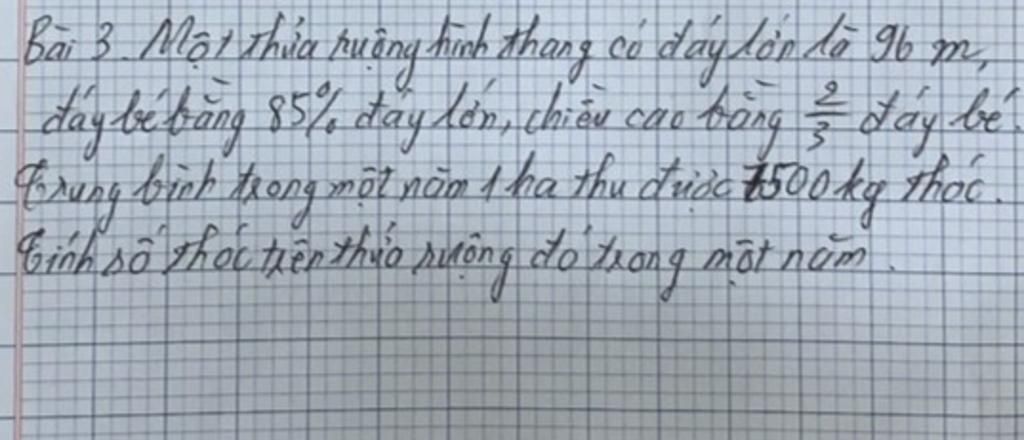 Bài 3. Một thửa ruộng hình thang có đáy lớn là 96 m,
đáy bé bằng 85% đáy lớn, chiều cao bằng 2/3 đáy bé.
Trung bình trong một năm 1 ha thu được 7500 kg thóc.
Tính số thóc trên thửa ruộng đó trong một năm.